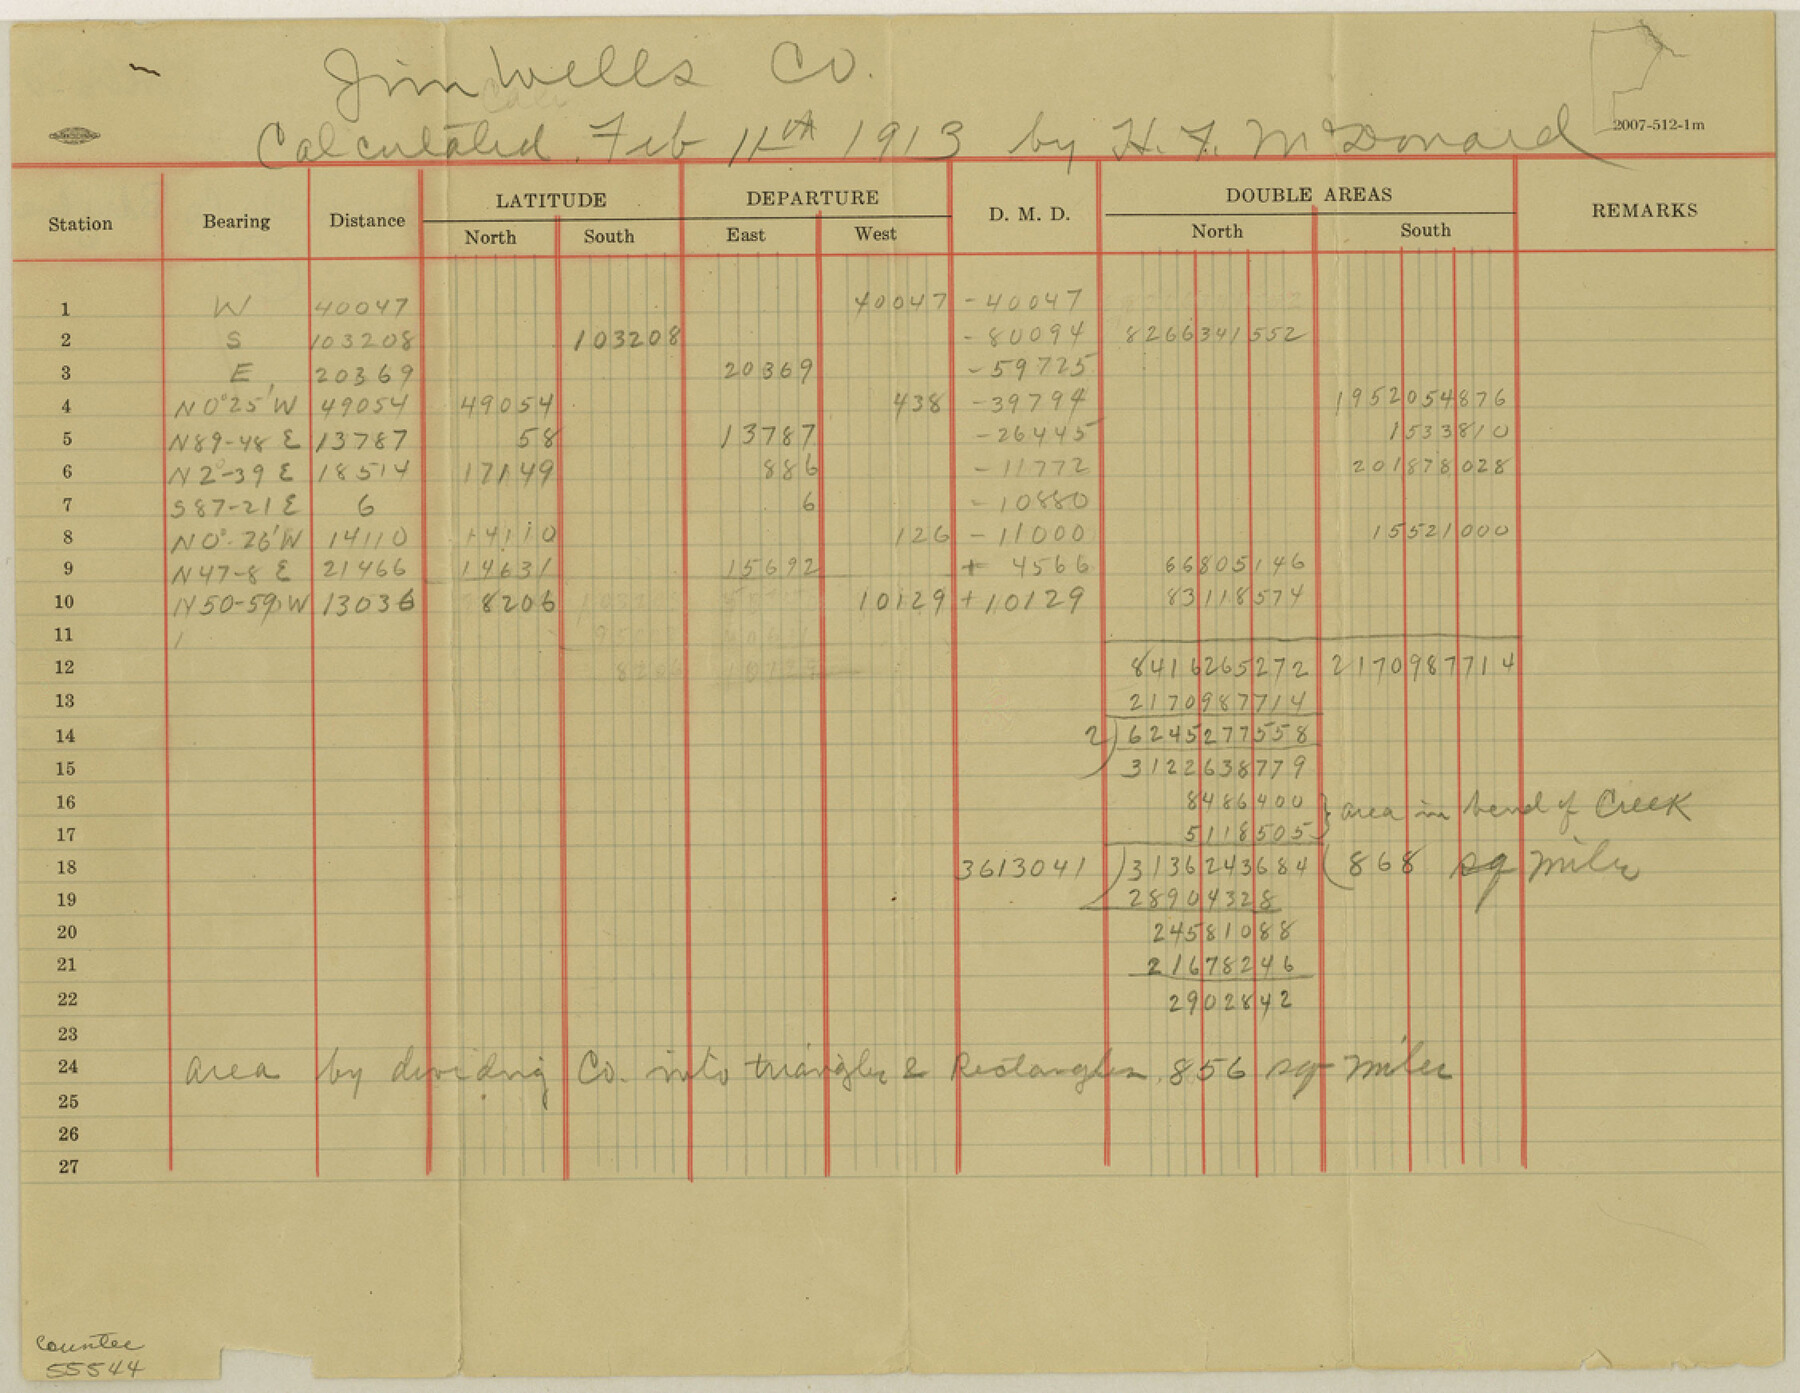 Jim Wells Co.
Calculated Feb 11th 1913 by H. F. McDonald
2007-512-1m
Station Bearing Distance LATITUDE North South DEPARTURE East West D. M. D. DOUBLE AREAS North South REMARKS
1 W 40047 40047 -40047
2 S 103208 103208 -80094 8266341552
3 E 20369 20369 -59725
4 N 0°25' W 49054 49054 438 -39794 1952054876
5 N 89-48 E 13787 58 13787 -26445 1533810
6 N 2°-39 E 18514 17149 886 -11772 201878028
7 S 87-21 E 6 6 -10880
8 N 0°-26' W 14110 14110 126 -11000 15521000
9 N 47-8 E 21466 14631 15692 + 4566 66805146
10 N 50-59 W 13036 8206 10129 +10129 83118574
11
12 8206 8416265272 2170987714
13 2170987714
14 2)6245277558
15 3122638779
16 8486400 } area in bend of Creek
17 5118505
18 3613041 )3136243684 (868 sq miles
19 28904328
20 24581088
21 21678246
22 2902842
23
24 area by dividing Co. into triangles & Rectangles 856 sq miles
25
26
27
counter
55544